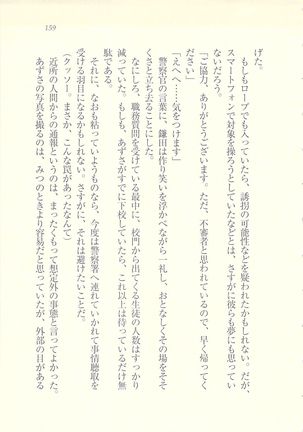 159
げた。
もしもロープでも入っていたら、誘拐の可能性などを疑われたかもしれない。だが、
スマートフォンで対象を操ろうとしていたなどとは、さすがに彼らも夢にも思ってい
ないだろう。
「ご協力、ありがとうございます。ただ、不審者と思われているので、早く帰ってく
ださい」
「えへへ……気をつけます」
警察官の言葉に、鎌田は作り笑いを浮かべながら一礼し、おとなしくその場をそそ
くさと立ち去ることにした。
なにしろ、職務質問を受けている最中に、校門から出てくる生徒の人数はすっかり
減っていた。もしも、あずさがすでに下校していたら、これ以上は待っているだけ無
駄である。
それに、なおも粘っていようものなら、今度は警察署へ連れていかれて事情聴取を
受ける羽目になるかもしれない。さすがに、それは避けたいことだ。
（クッソー。まさか、こんな罠があったなんて）
近所の人間からの通報というのは、まったくもって想定外の事態と言ってよかった。
あずさの写真を撮るのは、みつのときより容易だと思っていたが、外部の目がある